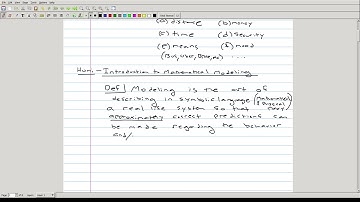 (a) distance (b) money
(c) time (d) security
(e) means (f) mood
(Bus, Uber, Drive,
Introduction to Mathematical Modeling
Def Modeling is the art of
describing in symbolic language (Mathematical
a real life system so that
approximately correct predictions can
be made regarding the behavior
and/